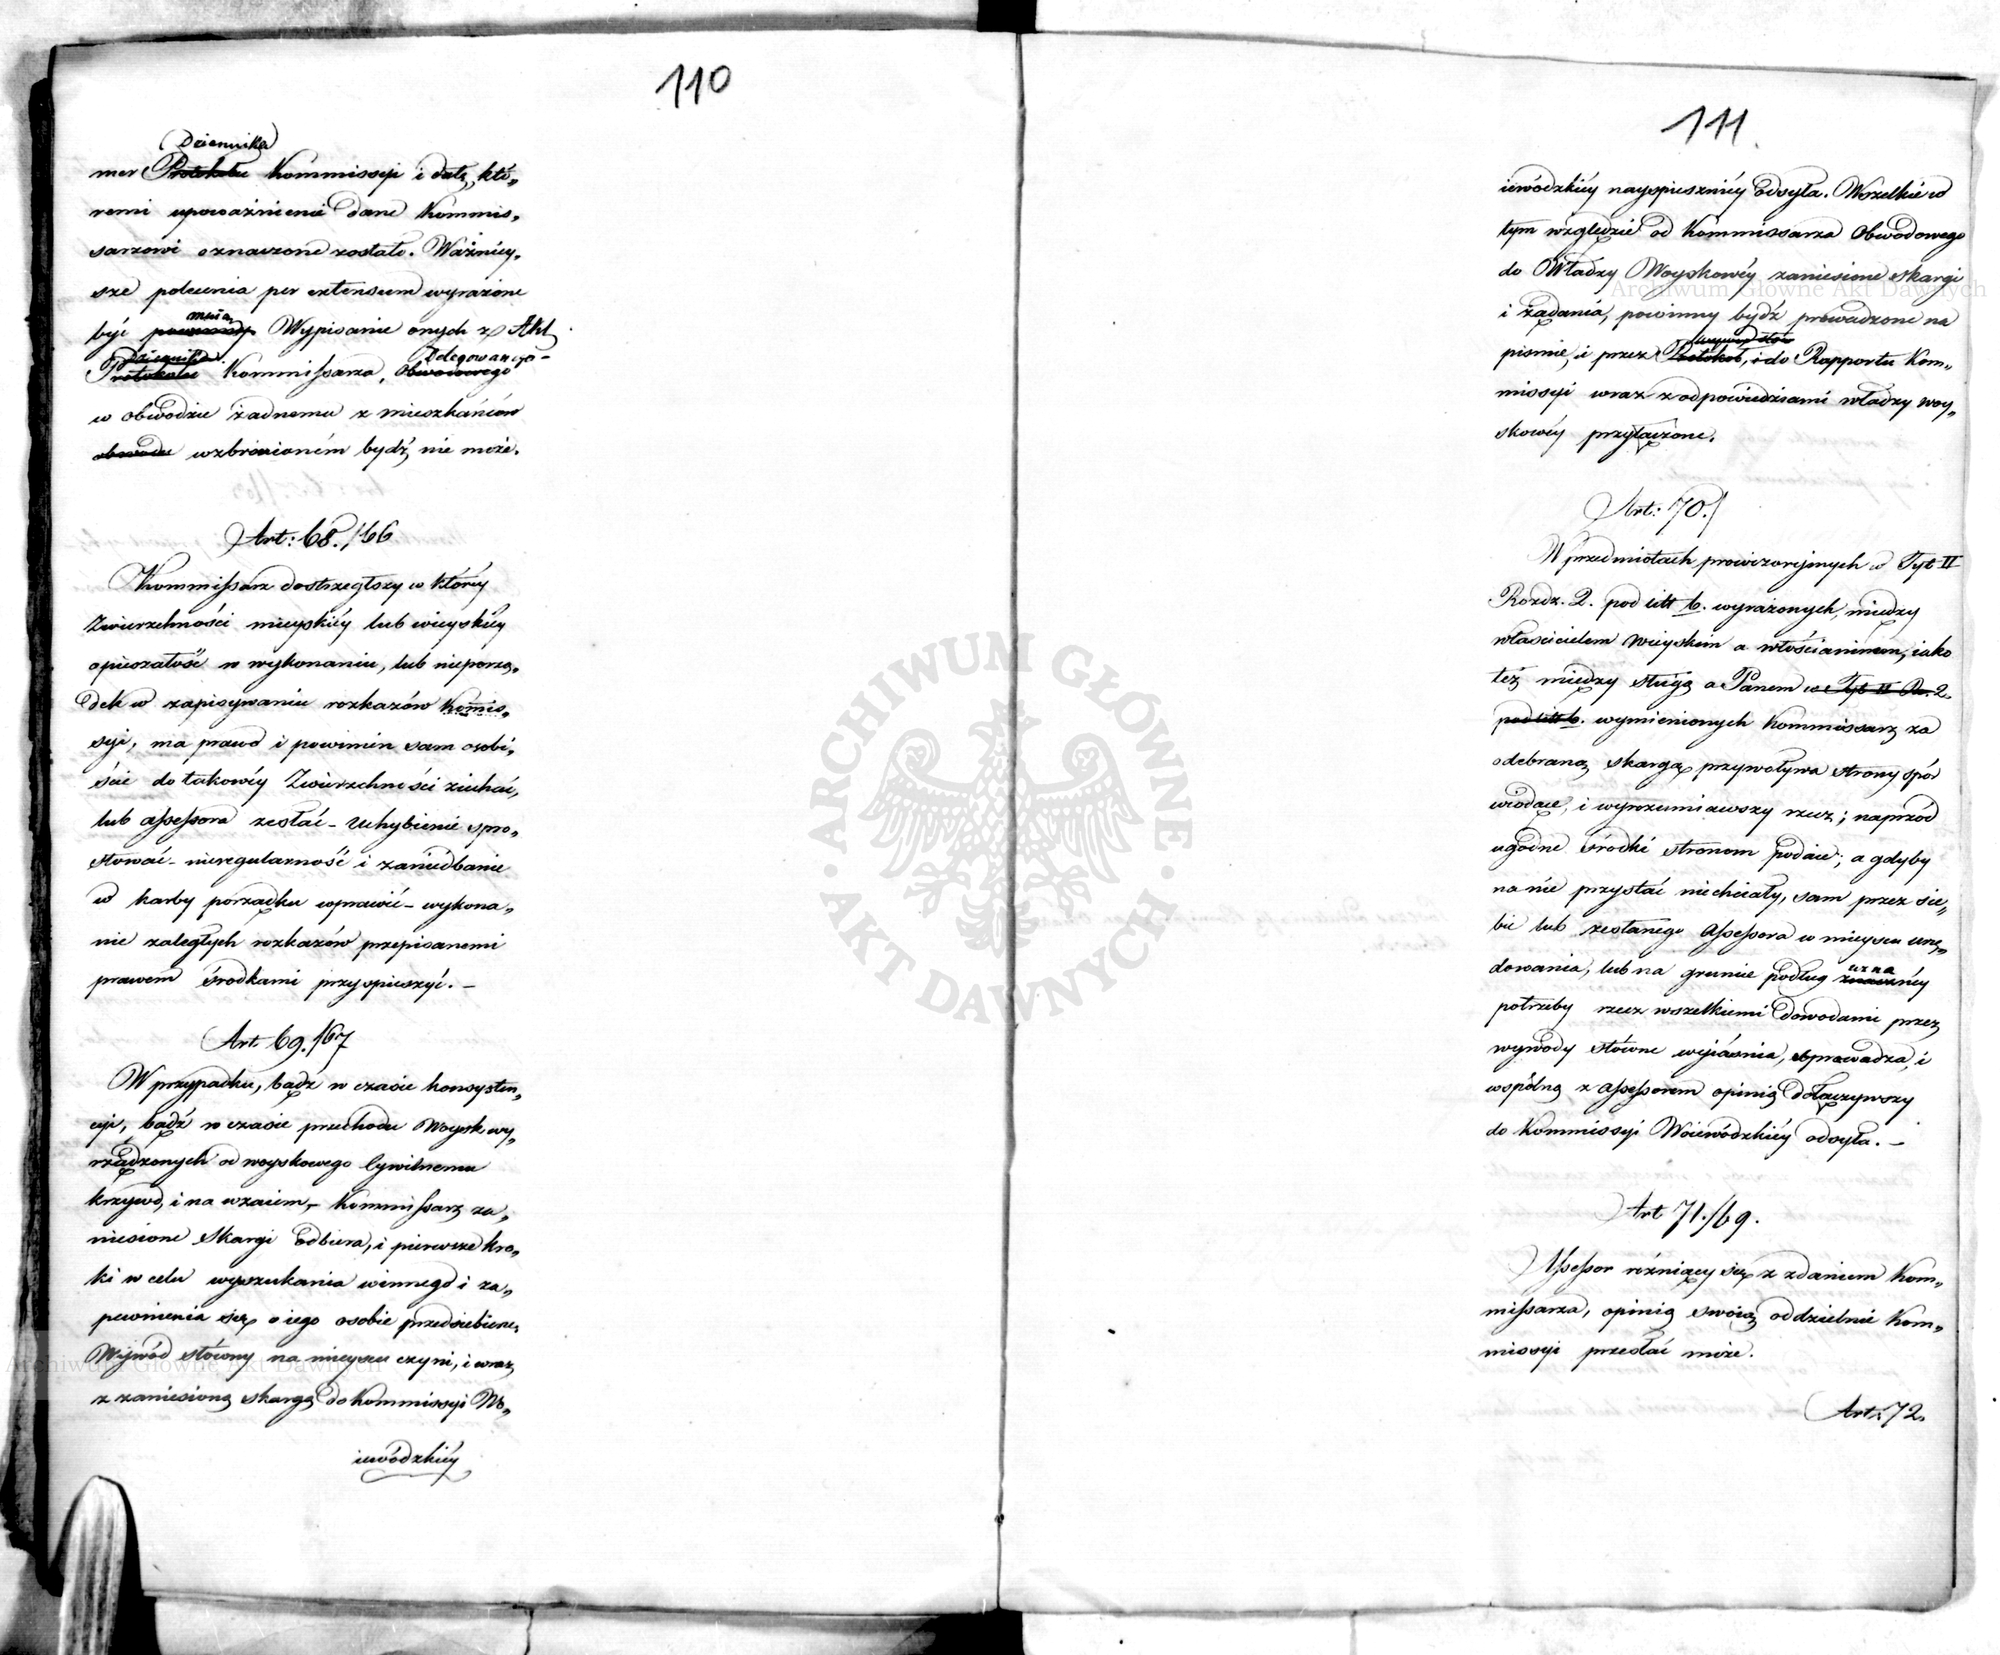 110
Dziennika
mer Protokułu Kommissyi i datę, któ„
remi upoważnienie dane Kommis„
sarzowi oznaczone zostało. Ważniey„
sze polecenia per extensum wyrażone
muią
być powinny Wypisanie onych z Akt
Dziennika Delegowanego
Protokułu Kommissarza, Obwodowego
w obwodzie żadnemu z mieszkańców
obwodu wzbronioném bydź nie może.
Art: 68./66
Kommissarz dostrzegłszy w któréy
Zwierzchności mieyskiéy lub wieyskiéy
opieszałość w wykonaniu, lub nieporzą„
dek w zapisywaniu rozkazów Komis„
syi, ma prawo i powinien sam osobi„
ście do takowéy Zwierzchności ziechać,
lub assessora zesłać – uchybienie spro„
stować – nieregularność i zaniedbanie
w karby porządku wprawić – wykona„
nie zaległych rozkazów przepisanemi
prawem środkami przyspieszyć. –
Art. 69./67
W przypadku, bądź w czasie konsysten„
cyi, bądź w czasie przechodu Woysk wy„
rządzonych od woyskowego Cywilnemu
krzywd, i na wzaiem, – Kommissarz za„
niesione skargi odbiera, i pierwsze kro„
ki w celu wyszukania winnego i za„
pewnienia się o iego osobie przedsiebierze,
Wywód słówny na mieyscu czyni, i wraz
z zaniesioną skargą do Kommissyi Wo„
iewódzkiéy
111.
iewódzkiéy nayspieszniéy odsyła. Wszelkie w
tym względzie od Kommissarza Obwodowego
do Władzy Woyskowéy zaniesione skargi
i żądania, powinny bydź prowadzone na
wywód słow
piśmie, i przez Protokół, i do Rapportu Kom„
missyi wraz z odpowiedziami władzy woy„
skowéy przyłączone.
Art: 70./
W przedmiotach prowizoryinych w Tyt II
Rozdz. 2. pod litt b. wyrażonych, między
właścicielem wieyskim a włościaninem, iako
téż między sługą a Panem w Tyt II Ro. 2
pod litt b. wymienionych Kommissarz za
odebraną skargą przywoływa strony spór
wiodące, i wyrozumiawszy rzecz; naprzód
ugodne środki stronom podaie; a gdyby
na nie przystać niechciały, sam przez sie„
bie lub zesłanego assessora w mieyscu urzę„
dowania, lub na gruncie podług
uzna
znaczney
potrzeby rzecz wszelkiemi dowodami przez
wywody słówne wyiaśnia, sprowadza, i
wspólną z assessorem opinią dołączywszy
do Kommissyi Woiewódzkiéy odsyła. –
Art 71./69.
Assessor różniący się z zdaniem Kom„
missarza, opinią swoią oddzielnie Kom„
missyi przesłać może.
Art: 72.
ARCHIWUM GŁÓWNE
AKT DAWNYCH
Archiwum Główne Akt Dawnych
Archiwum Główne Akt Dawnych